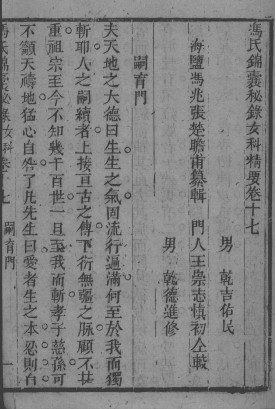 馮氏錦囊秘錄女科精要卷十七
海鹽馮兆張楚瞻甫纂輯　門人王崇志慎初仝較
男　乾吉佑民
男　乾德進修
嗣育門
夫天地之大德曰生生之氣固流行遍滿何至於我而獨
斬耶人之嗣續者上接亘古之傳下衍無疆之脉顧不甚
重祖宗至今不知幾千百世一旦至我而斬孝子慈孫可
不籲天禱地猛心自咎了凡先生曰愛者生之本忍則自
馮氏錦囊秘錄女科卷十七　嗣育門　一